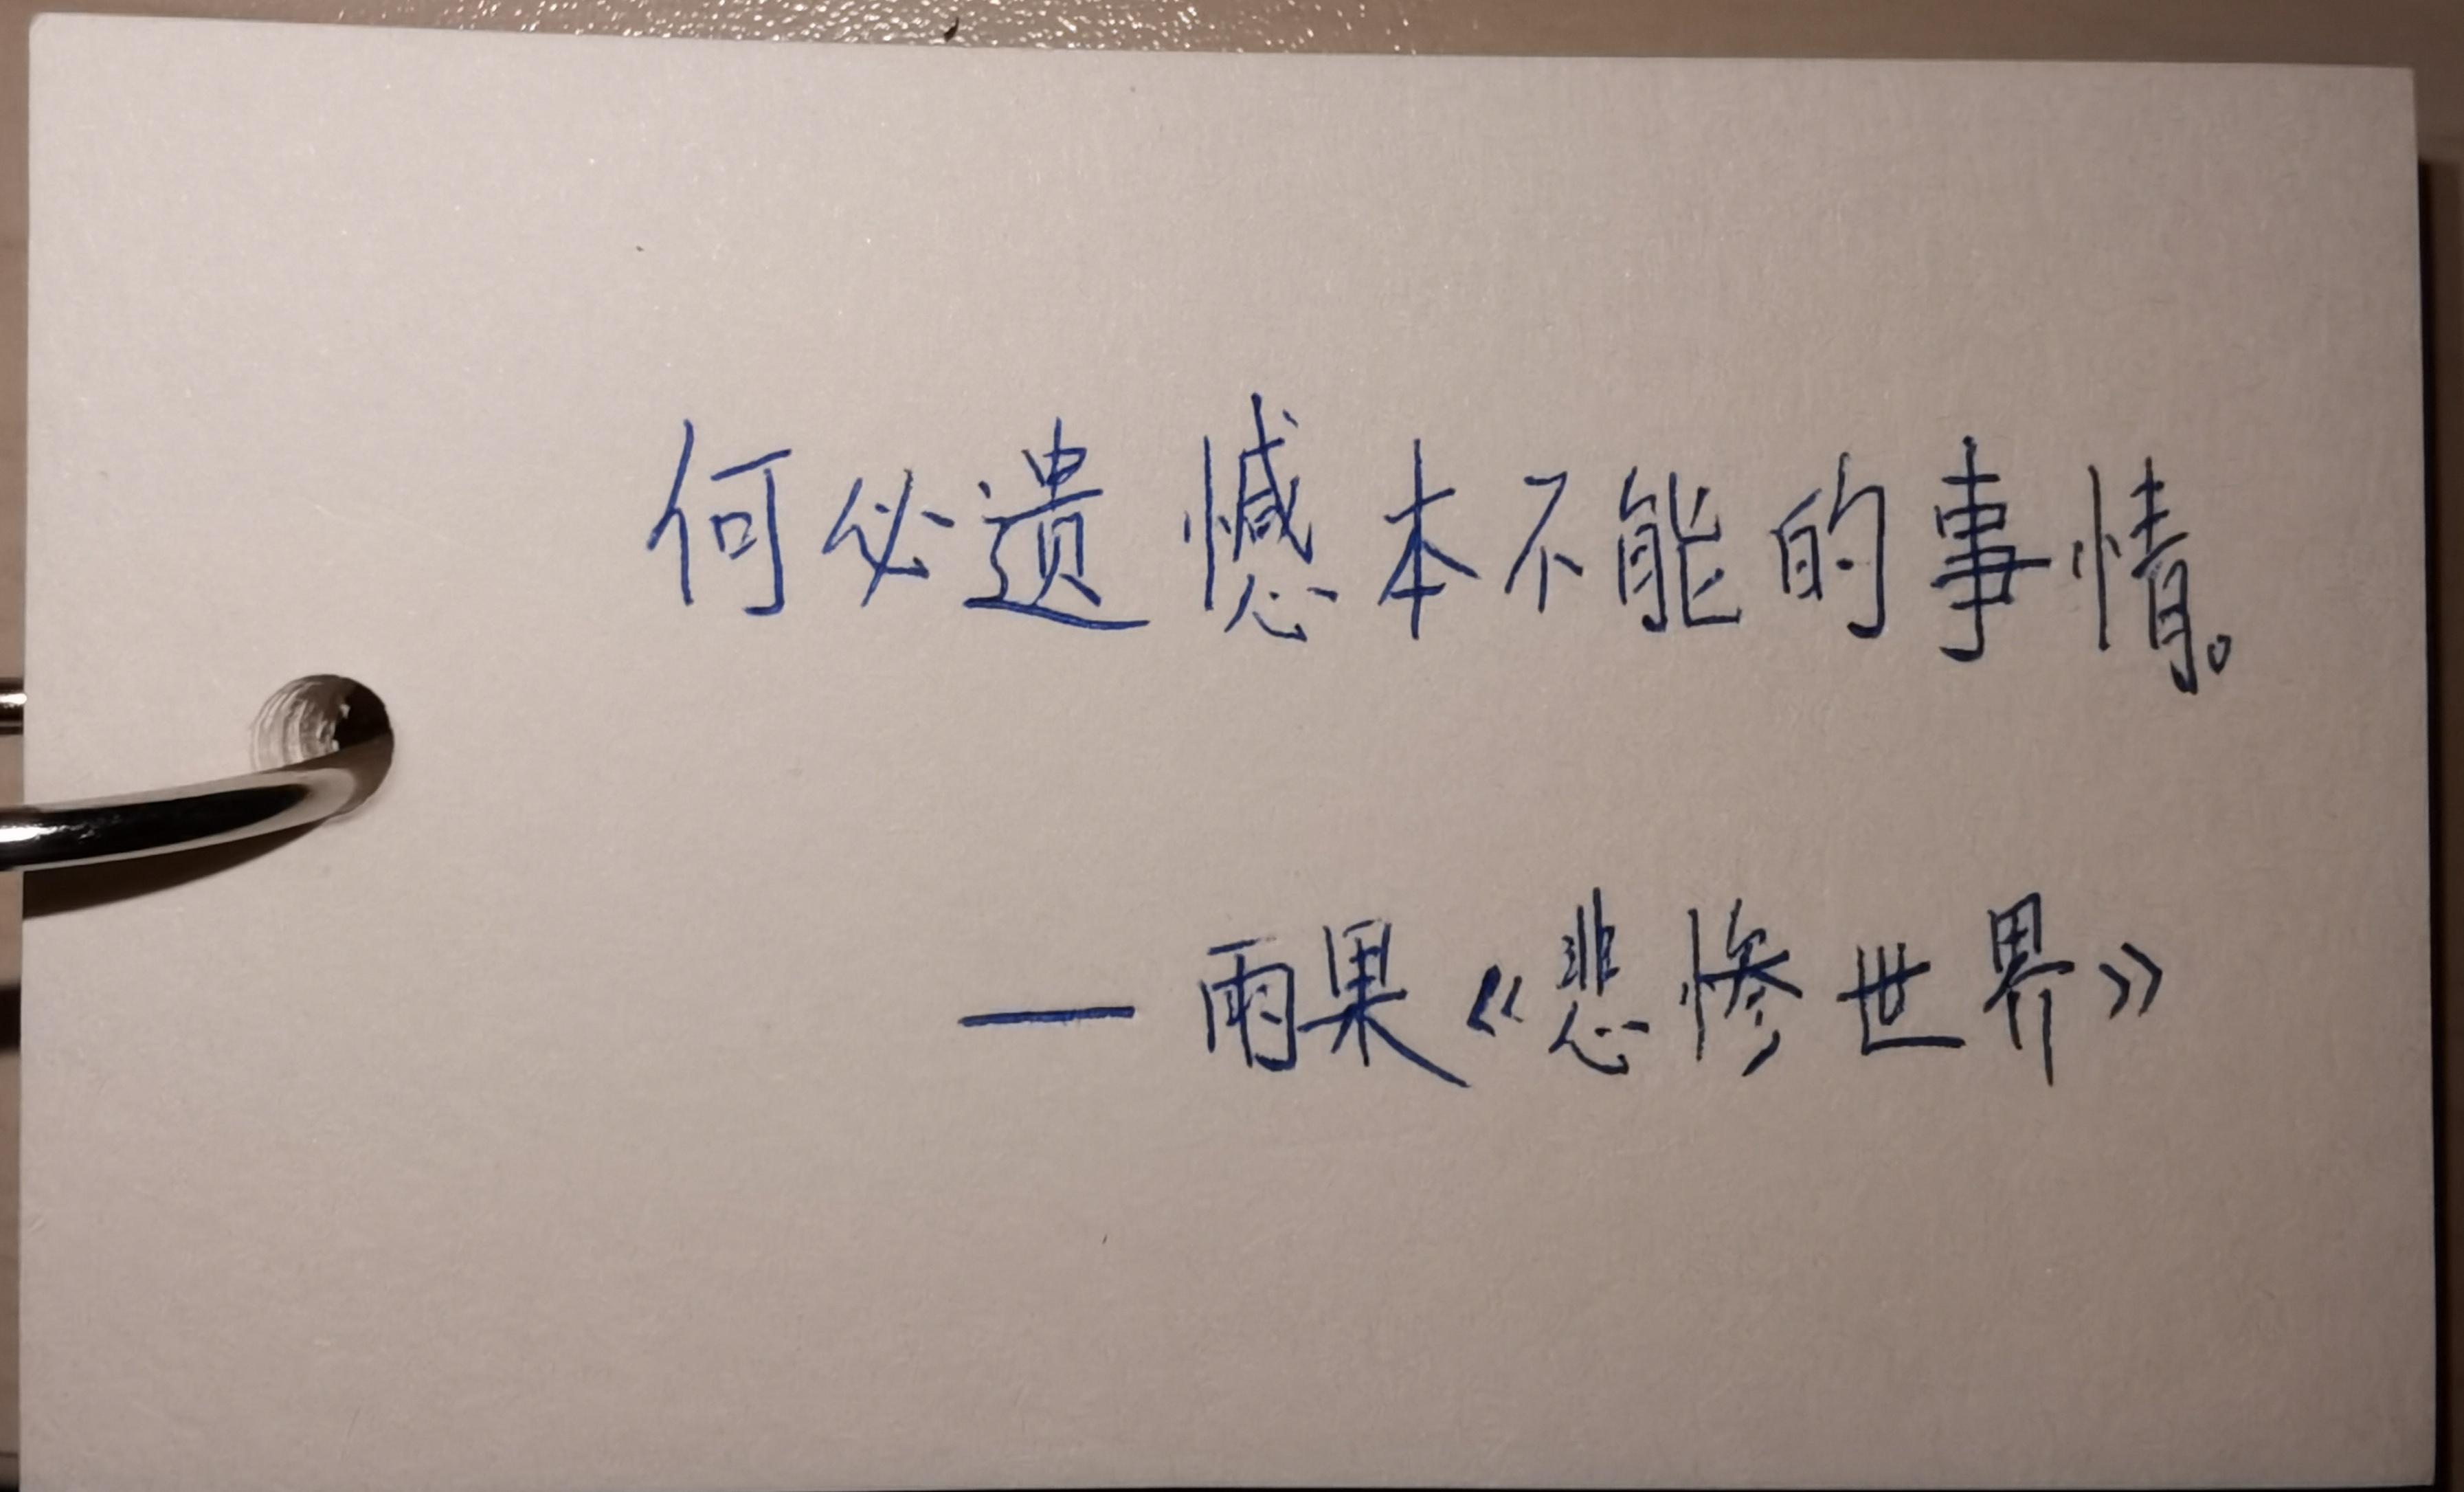 何必遗憾本不能的事情。
— 雨果《悲惨世界》